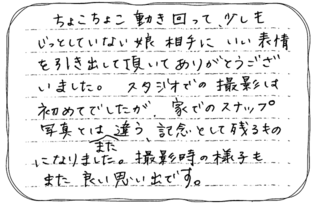 ちょこちょこ動き回って、少しも
じっとしていない娘相手にいい表情
を引き出して頂いてありがとうござ
いました。スタジオでの撮影は
初めてでしたが、家でのスナップ
写真とはまた違う、記念として残るもの
になりました。撮影時の様子も
また良い思い出です。